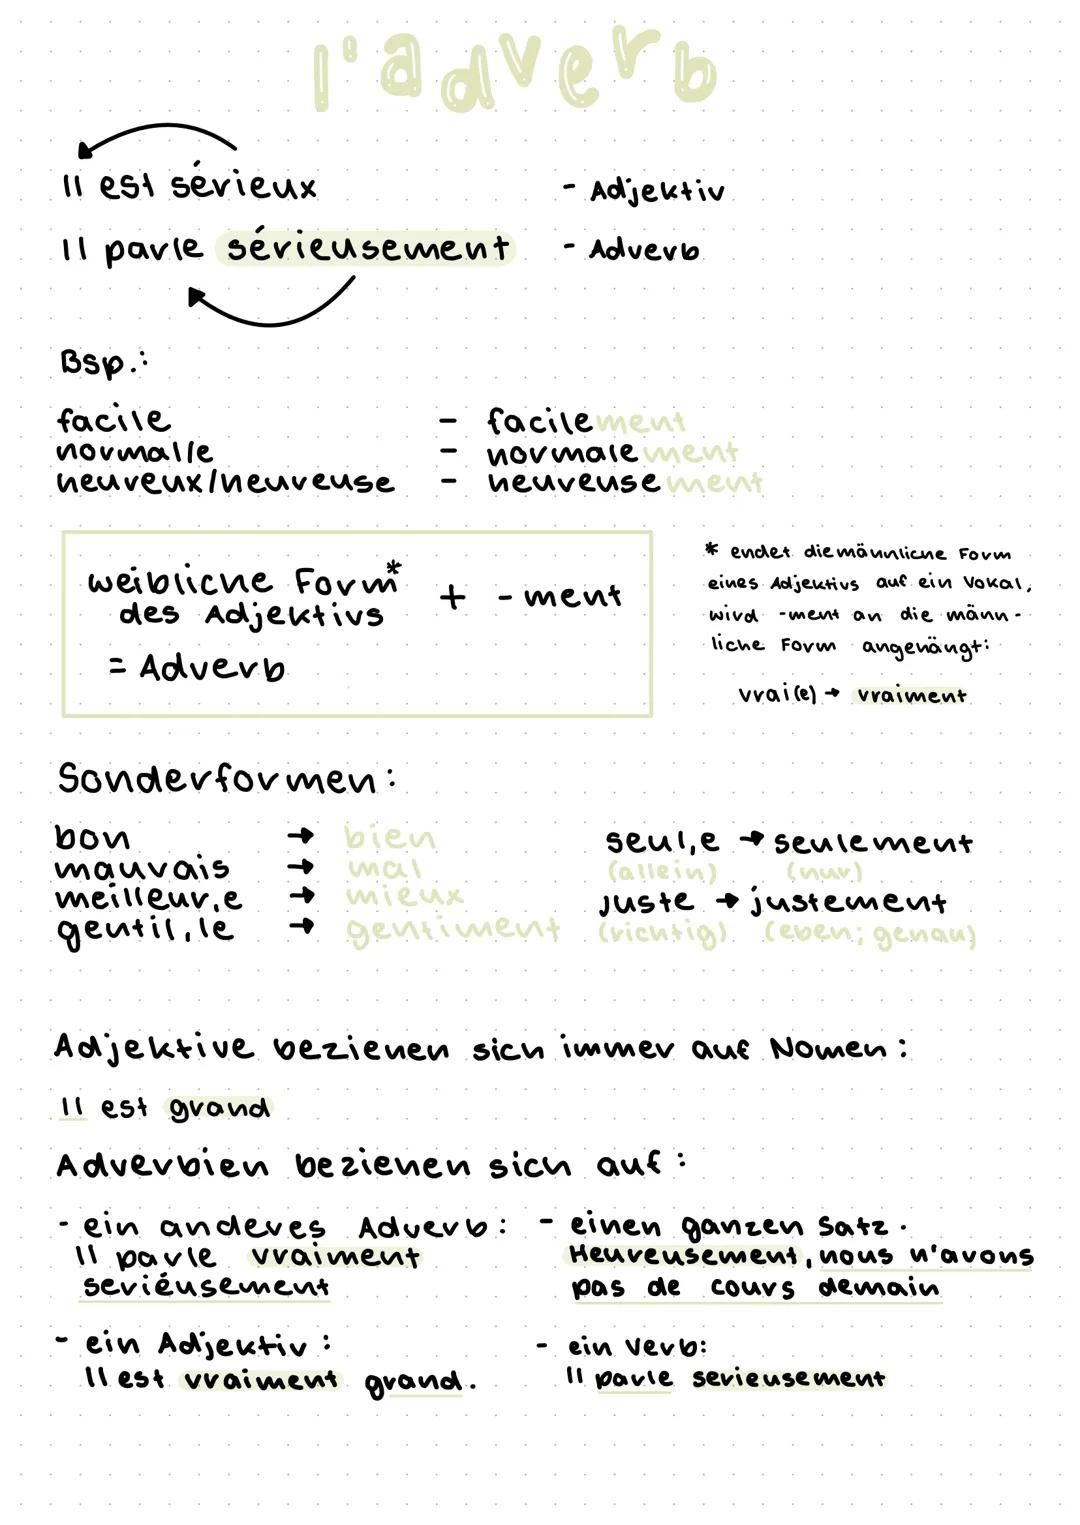 l'adverb
Il est sérieux - Adjektiv
Il parle sérieusement - Adverb
Bsp.:
facile - facilement
normal/e - normalement
heureux/heureuse - heureusement
weibliche Form* + -ment
des Adjektivs
= Adverb
* endet die männliche Form
eines Adjektivs auf ein Vokal,
wird -ment an die männ-
liche Form angehängt:
vrai(e) → vraiment
Sonderformen:
bon → bien
mauvais → mal
meilleur,e → mieux
gentil,le → gentiment
seul,e → seulement
(allein) (nur)
juste → justement
(richtig) (eben; genau)
Adjektive beziehen sich immer auf Nomen:
Il est grand
Adverbien beziehen sich auf:
- ein anderes Adverb:
Il parle vraiment
seriéusement
- einen ganzen Satz.
Heureusement, nous n'avons
pas de cours demain
- ein Adjektiv:
Il est vraiment grand.
- ein Verb:
Il parle serieusement